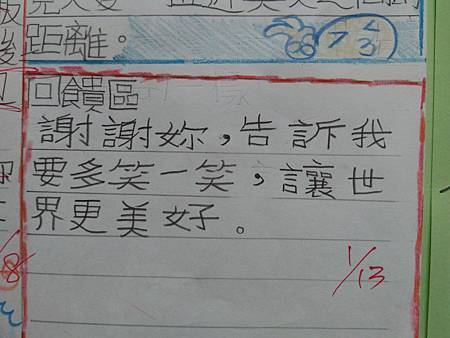 距離。
回饋區
謝謝妳，告訴我
要多笑一笑，讓世
界更美好。
1/13